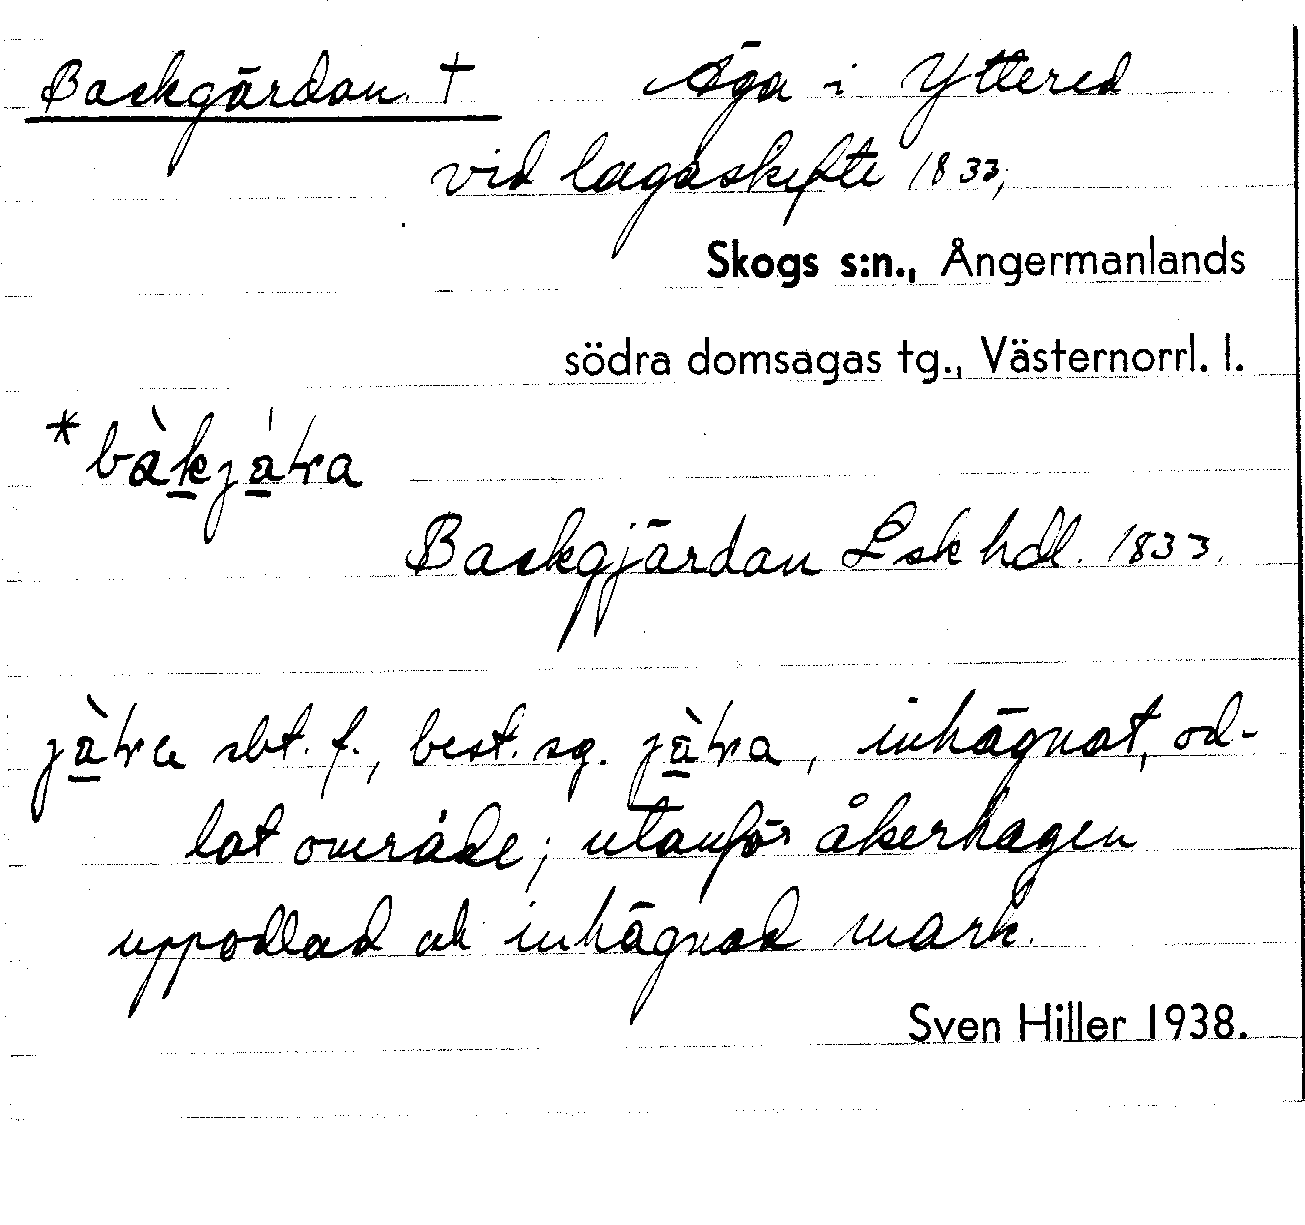 Backgärdan † Äga i Yttered
vid lagaskifte 1833,
Skogs s:n., Ångermanlands
södra domsagas tg., Västernorrl. l.
Backgjärdan Lsk hdl. 1833.
sbt. f., best. sg. , inhägnat, od-
lat område; utanför åkerhagen
uppodlad ock inhägnad mark.
Sven Hiller 1938.